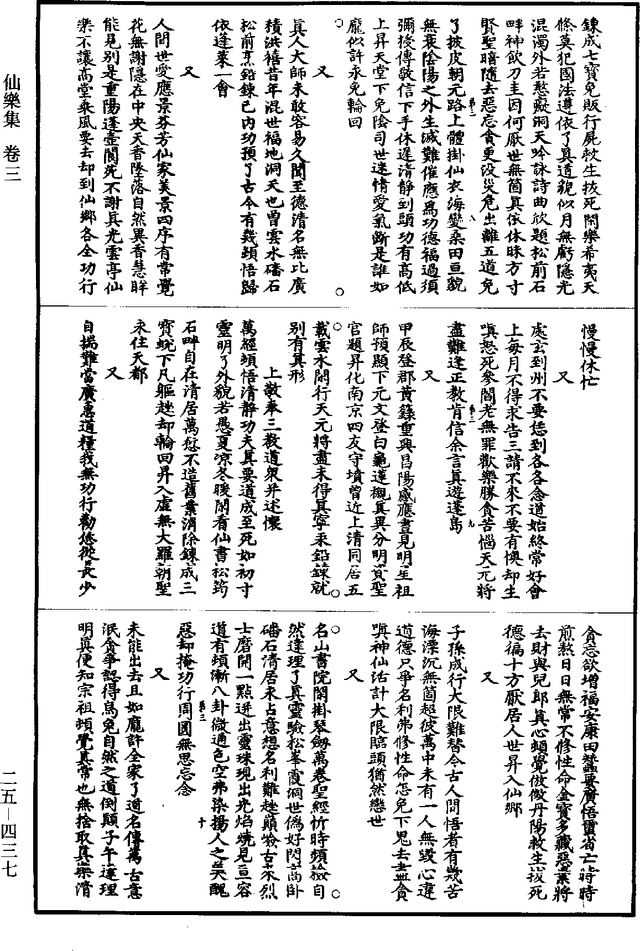 仙樂集 卷三
二五－四三七
鍊成七寶免販行屍救生拔死閙樂希夷天
條莫犯國法遵依了真道貌似月無虧隱光
混濁外若愁癡洞天吟詠詩曲欣題松前石
畔神飲刀圭因何厭世無箇真依休昧方寸
賢聖暗隨去惡忘貪更沒災危出離五道免
了披皮朝元路上體掛仙衣海變桑田亘貌
無衰陰陽之外生滅難催應為功德福過須
彌授傳敬信下手休遲清靜到頭功有高低
上昇天堂下免陰司世迷情愛氣斷是誰如
龐似許永免輪回
又
真人大師未敢容易久聞至德清名無比廣
積洪禧昔年混世福地洞天也曾雲水磻石
松前烹鉛鍊已內功預了古今有幾頭悟歸
依蓬萊一會
又
人間世愛應景芬芳仙家美景四序有常覺
花無謝隱在中央天香墜落自然異香慧眸
能見別是重陽蓬壺閬死不謝其光雲亭仙
樂不讓高堂乘風要去却到仙鄉各全功行
慢慢休忙
又
處玄到州不要恁到各各念道始終常好會
上每月不得求告三請不來不要有懊却生
嗔怒死參閻老無罪歡樂勝貪苦惱天元將
盡難逢正教肯信余言真遊蓬島
又
甲辰登郡黃籙重興昌陽感應晝見明星祖
師預顯下元文登白龜蓮襯真異分明資聖
官題昇化南京四友守墳曾近上清同居五
載雲水閑行天元將盡未得其寧乘鉛鍊就
別有真形
上敬奉三教道衆并述懷
萬經頓悟清靜功夫其要道成至死如初寸
靈明了外貌若愚夏涼冬暖閑看仙書松筠
石畔自在清居萬愆不造舊業消除鍊成三
寶蛻下凡軀趓却輪回昇入虛無大羅朝聖
永住天都
又
自揣難當廣惠道糧我無功行勸恁從長少
貪忘欲增福安康田蠶要廣悟實省亡時時
煎熬日日無常不修性命金寶多藏惡業將
去財與兒郎真心頓覺倣倣丹陽救生拔死
德徧十方厭居人世昇入仙鄉
又
子孫成行大限難替今古人間悟者有幾苦
海漂沉無箇超彼萬中未有一人無毀心違
道德只爭名利弗修性命怎免下鬼去盡貪
嗔神仙活計大限臨頭猶然戀世
又
名山書院閑掛琴劒萬卷聖經忻時頻檢自
然達理了真靈驗松峯霞洞世僞好閂高卧
磻石清居永占意想名利難趓巔嶮古來烈
士磨開一點迸出靈珠現出光焰燒見亘容
道有頓漸八卦微通色空弗染揚人之美醜
惡却掩功行周圓無思忘念
又
未能出去且如龐許全家了道名傳萬古意
泯貪爭認得烏兔自然之道倒顛子午達理
明真便知宗祖頓覺真常也無捨取真樂清